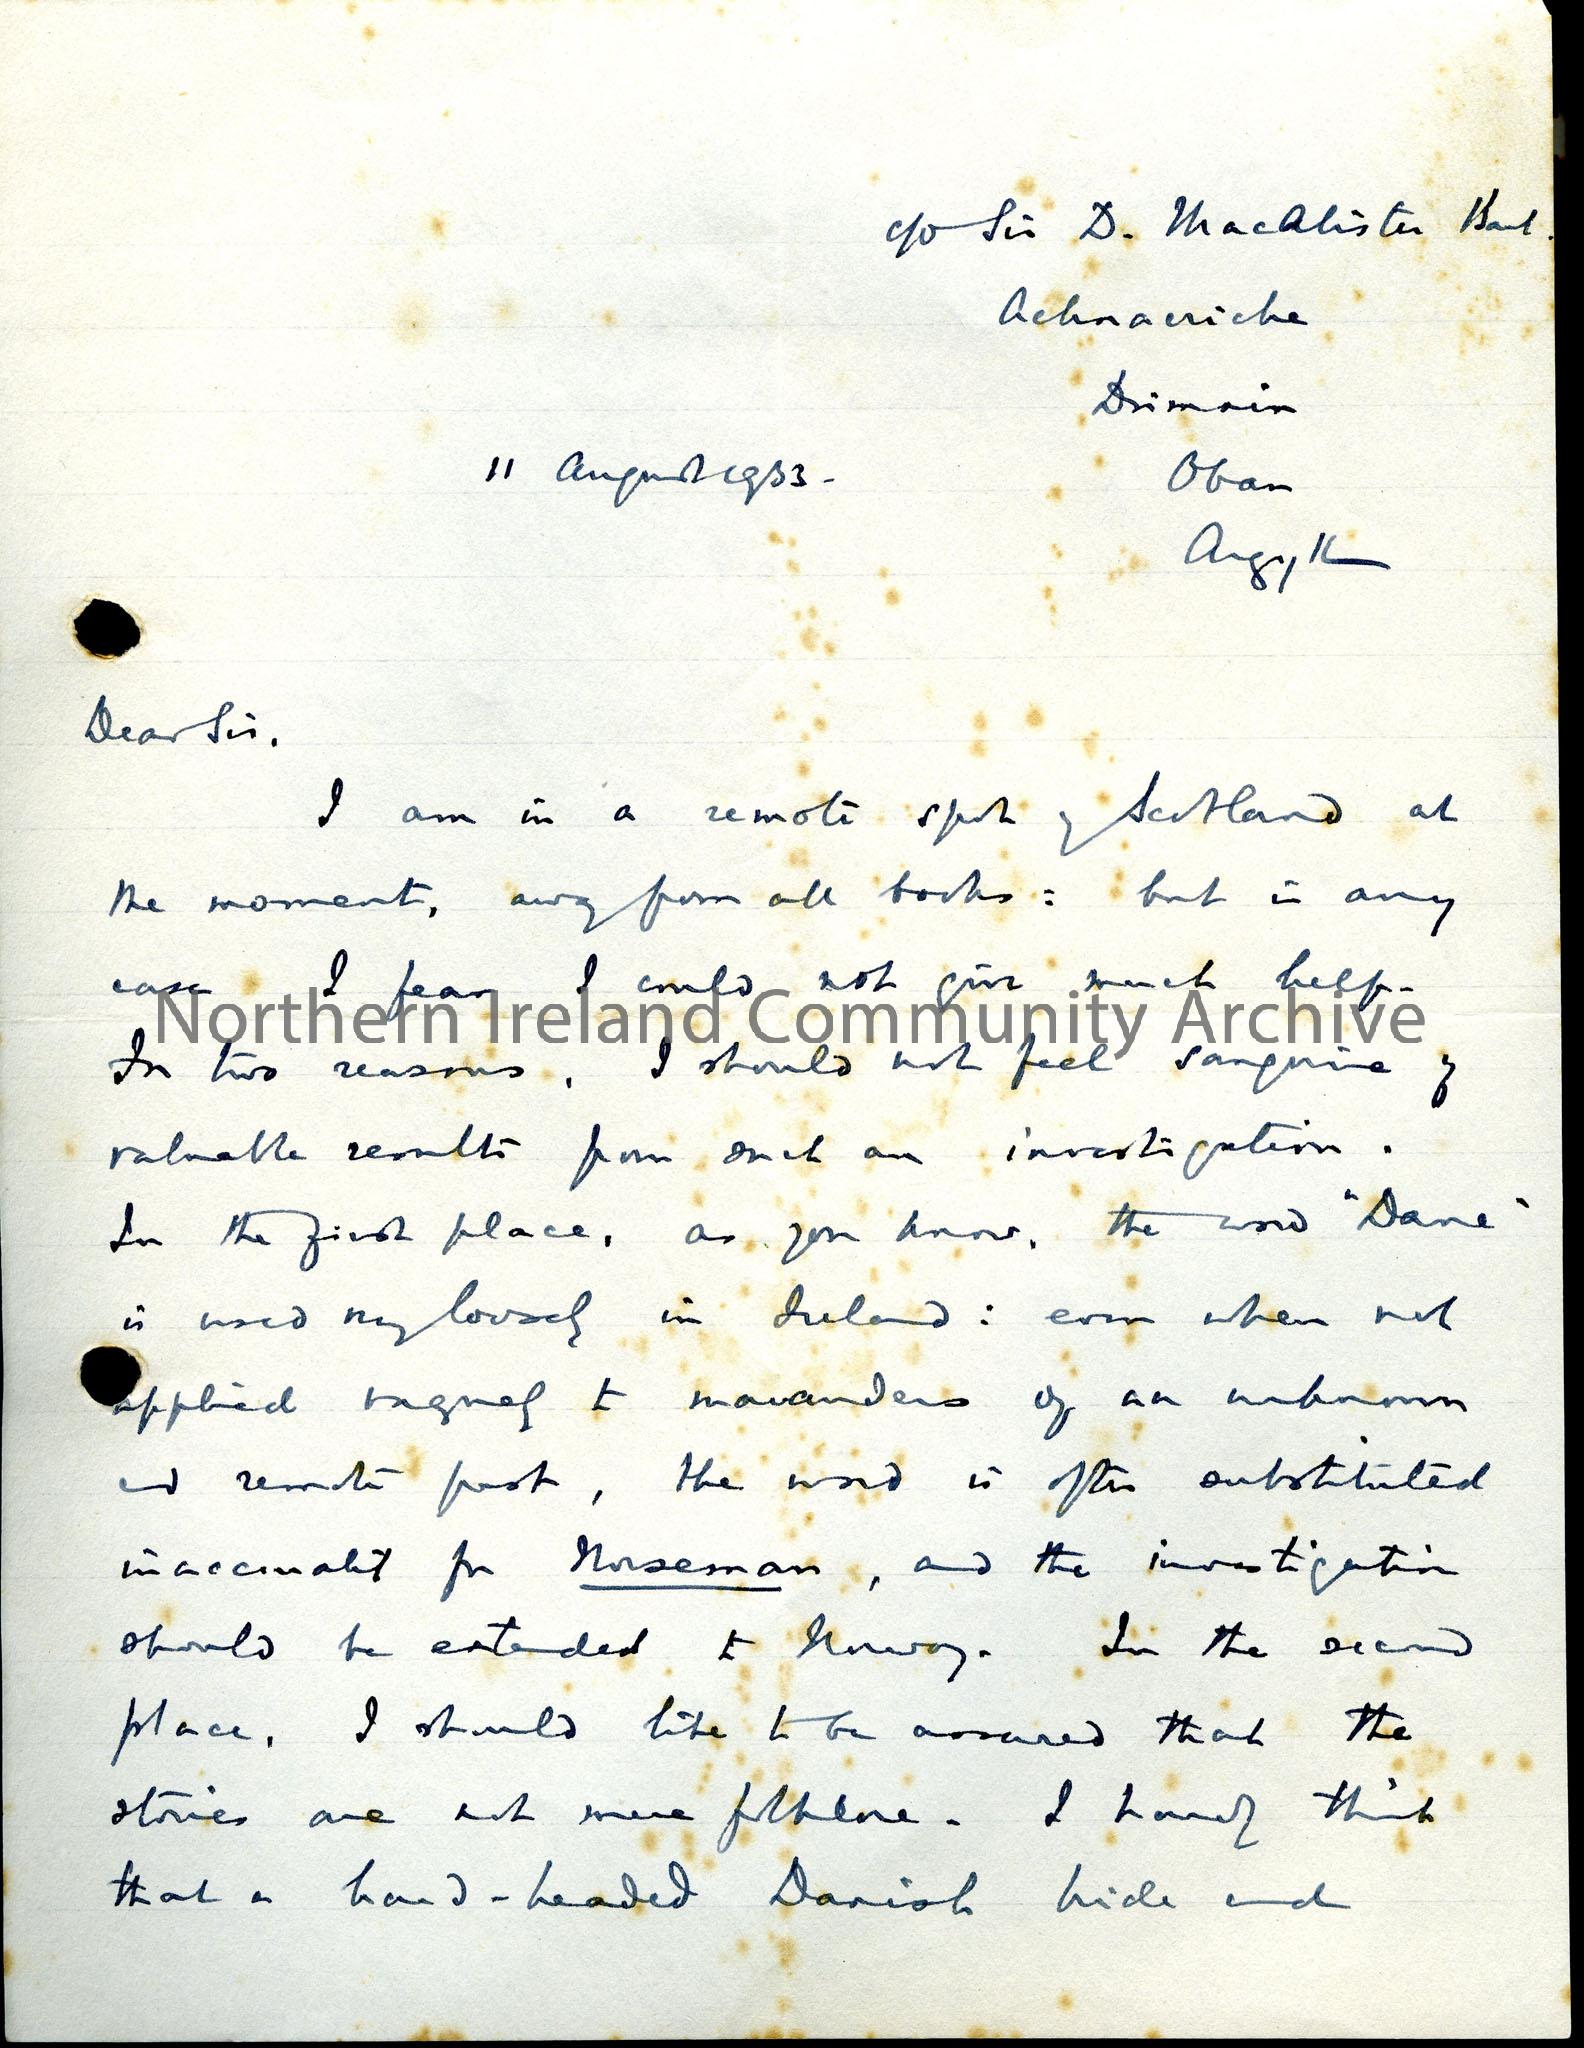 c/o Sir D. MacAlister Bart.
Achnacriche
Drimnin
Oban
Argyll
11 August 1933.
Dear Sir,
I am in a remote spot of Scotland at
the moment, away from all books: but in any
case I fear I could not give much help.
Northern Ireland Community Archive
In two reasons, I should not feel sanguine of
valuable results from such an investigation.
In the first place, as you know, the word "Dane"
is used very loosely in Ireland: even when not
applied vaguely to marauders of an unknown
and remote past, the word is often substituted
inaccurately for Norseman, and the investigation
should be extended to Norway. In the second
place, I should like to be assured that the
stories are not mere folklore. I hardly think
that a hard-headed Danish bride and